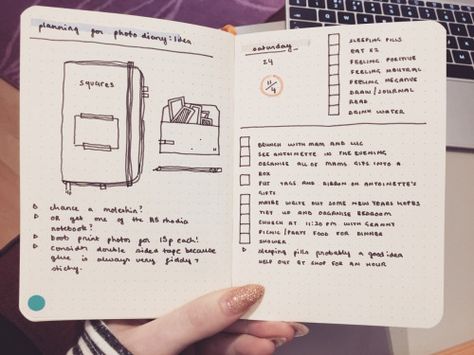 planning for photo diary: Idea
squares
chance a moleskin?
or get one of the A5 rhodia
notebook?
boots print photos for 15p each!
Consider double sided tape because
glue is always very fiddly +
sticky.
saturday
24
11/4
SLEEPING PILLS
EAT X2
FEELING POSITIVE
FEELING NEUTRAL
FEELING NEGATIVE
DRAW / JOURNAL
READ
DRINK WATER
BRUNCH WITH MAM AND
SEE ANTOINETTE IN THE EVENING
ORGANISE ALL OF MAMS GIFTS INTO A
BOX
PUT TAGS AND RIBBON ON ANTOINETTE'S
GIFTS
MAYBE WRITE OUT SOME NEW YEARS HOPES
TIDY UP AND ORGANISE BEDROOM
CHURCH AT 11:30 PM WITH GRANNY
PICNIC / PARTY FOOD FOR DINNER
SHOWER
sleeping pills probably a good idea
HELP OUT AT SHOP FOR AN HOUR